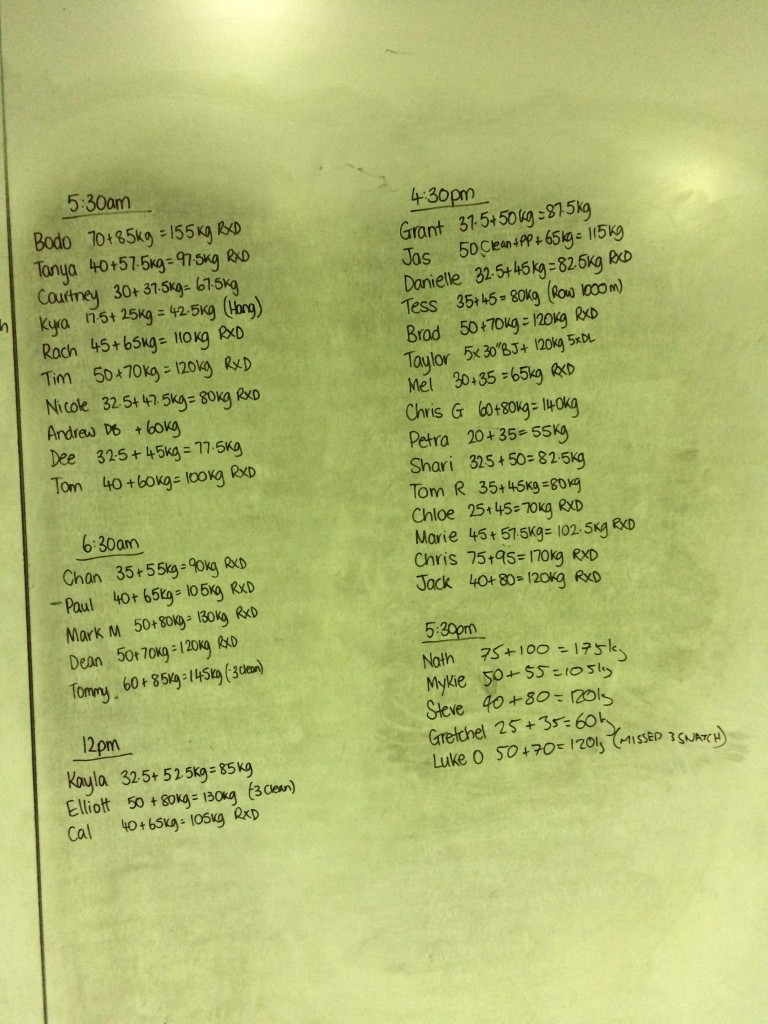 5:30am
Bodo 70+85kg=155kg RXD
Tanya 40+57.5kg=97.5kg RXD
Courtney 30+37.5kg=67.5kg
Kyra 17.5+25kg=42.5kg (Hang)
Rach 45+65kg=110kg RXD
Tim 50+70kg=120kg RXD
Nicole 32.5+47.5kg=80kg RXD
Andrew DB +60kg
Dee 32.5+45kg=77.5kg
Tom 40+60kg=100kg RXD
6:30am
Chan 35+55kg=90kg RXD
-Paul 40+65kg=105kg RXD
Mark M 50+80kg=130kg RXD
Dean 50+70kg=120kg RXD
Tommy. 60+85kg=145kg (-3 clean)
12pm
Kayla 32.5+52.5kg=85kg
Elliott 50+80kg=130kg (-3 clean)
Cal 40+65kg=105kg RXD
4:30pm
Grant 37.5+50kg=87.5kg
Jas 50 Clean+PP+65kg=115kg
Danielle 32.5+45kg=82.5kg RXD
Tess 35+45=80kg (Row 1000m)
Brad 50+70kg=120kg RXD
Taylor 5x30"BJ+120kg 5xDL
Mel 30+35=65kg RXD
Chris G 60+80kg=140kg
Petra 20+35=55kg
Shari 32.5+50=82.5kg
Tom R 35+45kg=80kg
Chloe 25+45=70kg RXD
Marie 45+57.5kg=102.5kg RXD
Chris 75+95=170kg RXD
Jack 40+80=120kg RXD
5:30pm
Nath 75+100=175kg
Mykie 50+55=105kg
Steve 40+80=120kg
Gretchel 25+35=60kg
Luke O 50+70=120kg (MISSED 3 SNATCH)